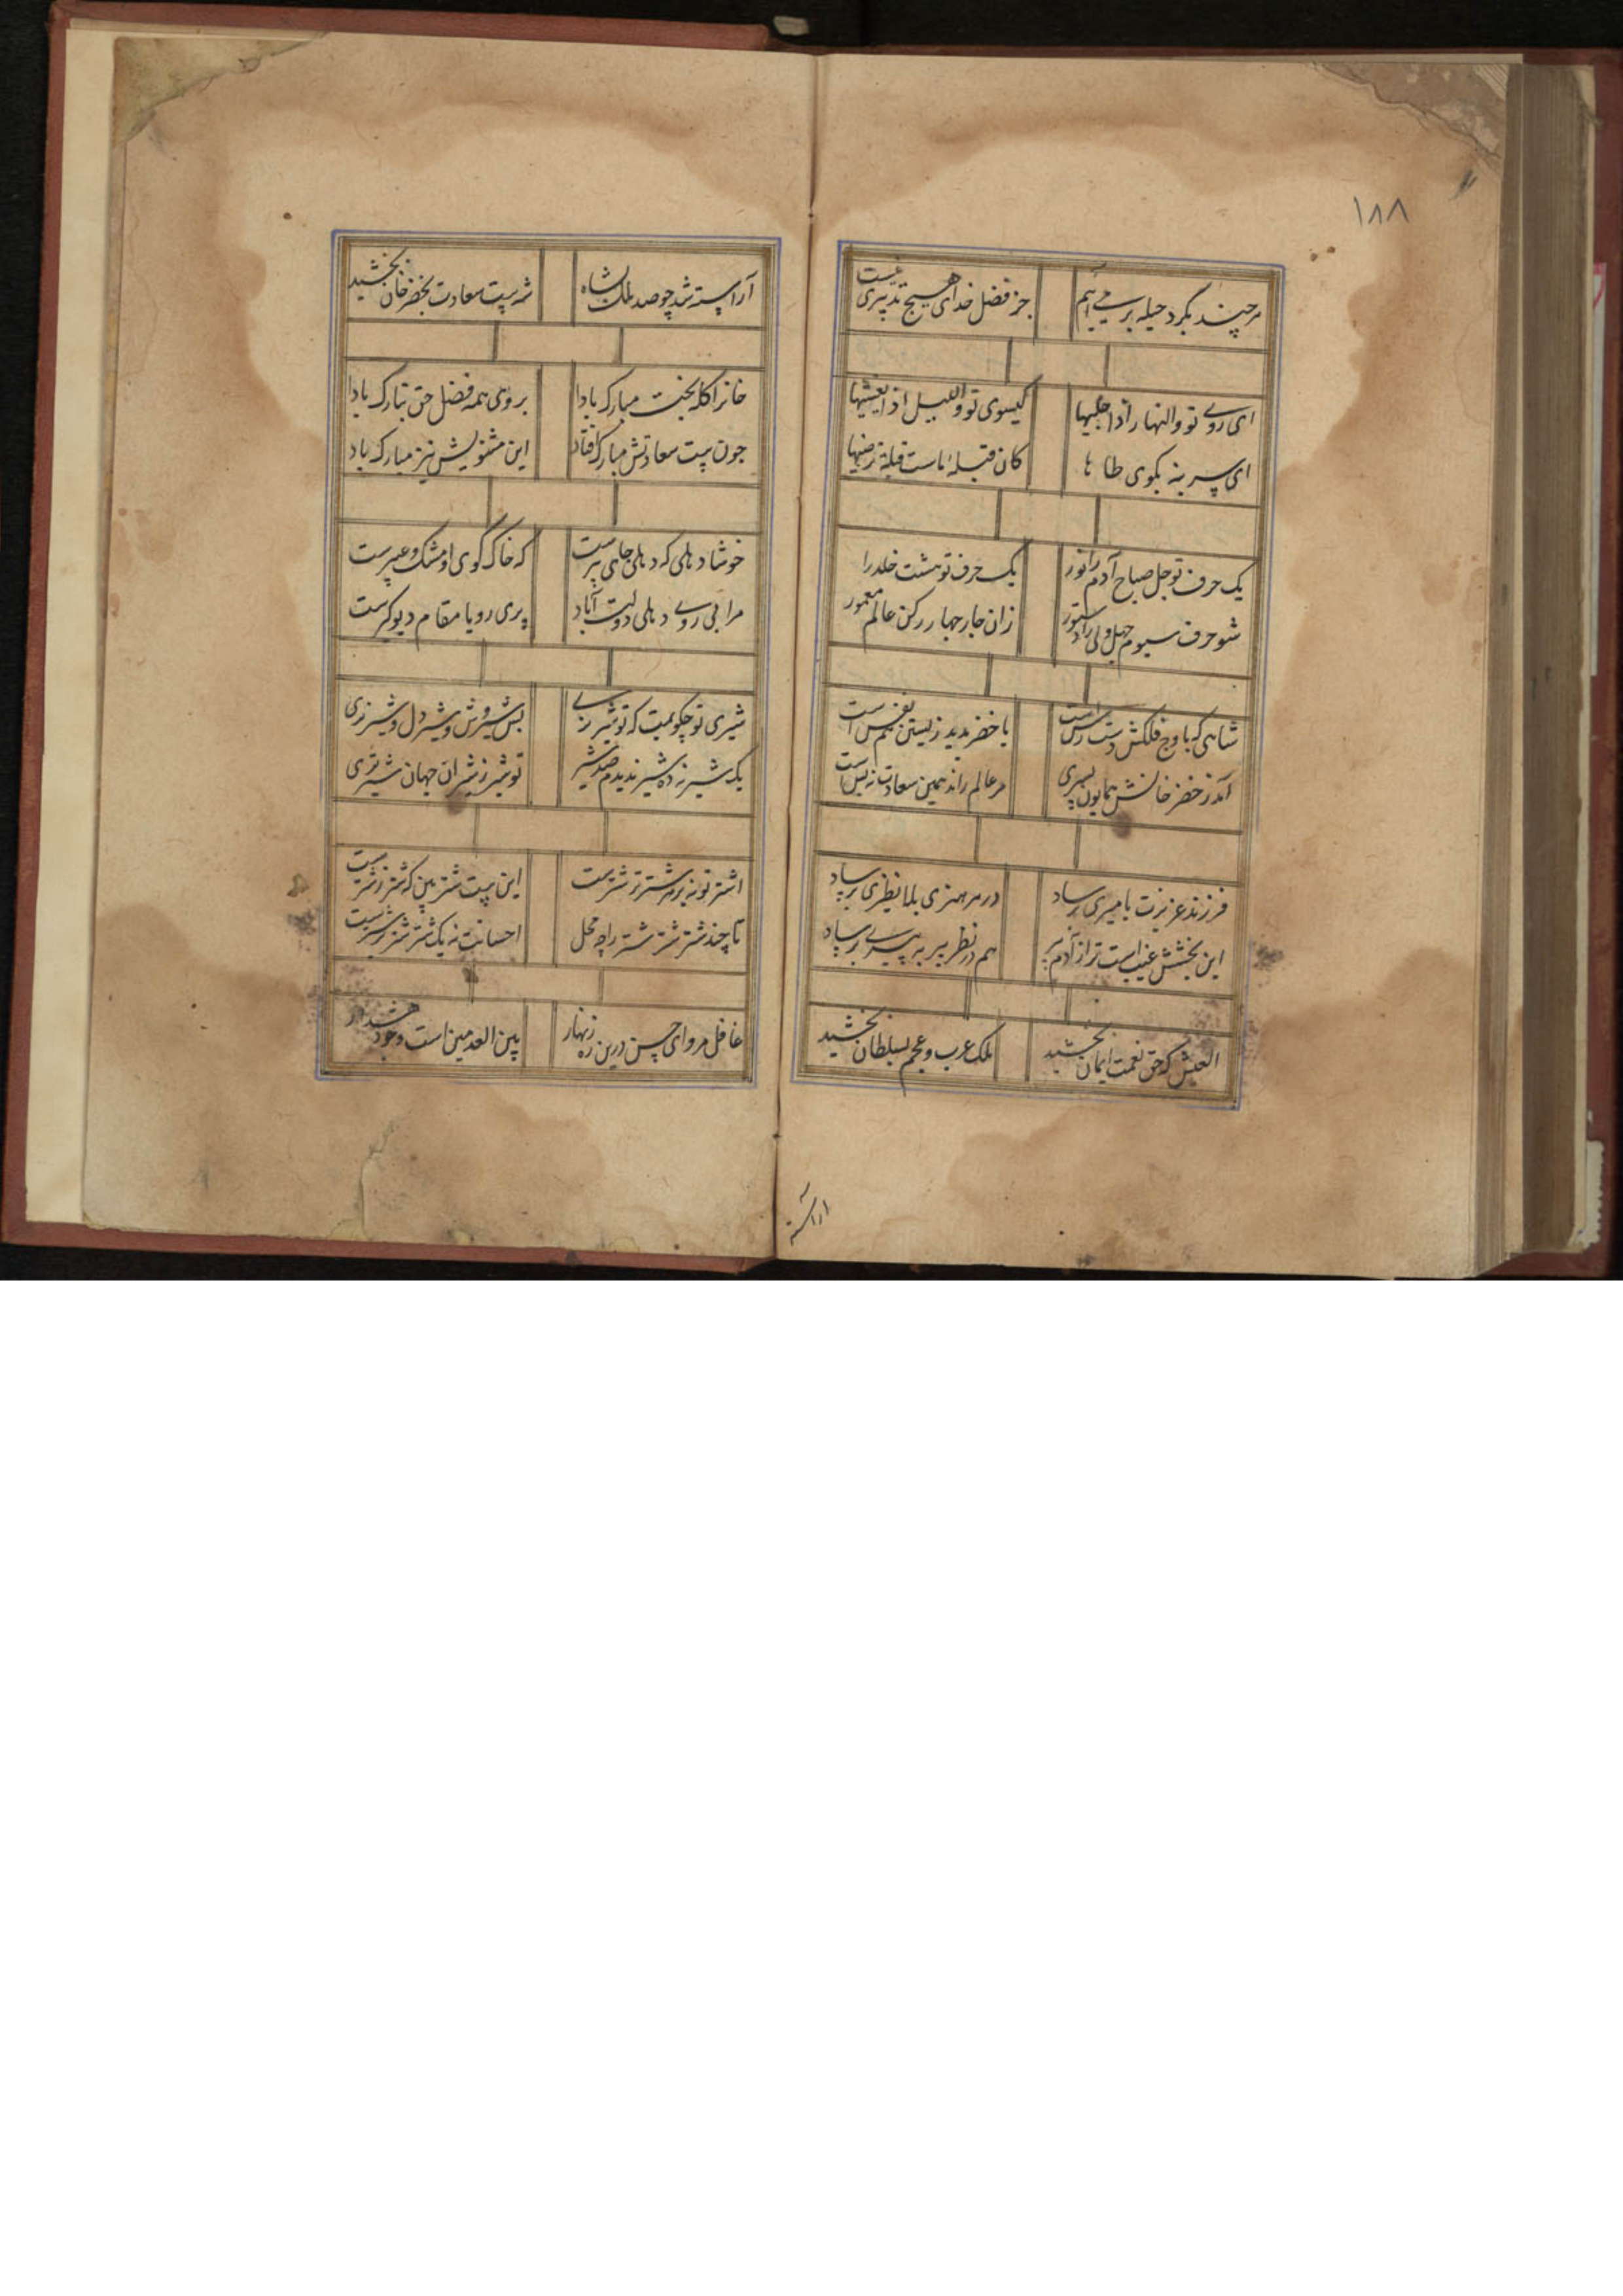 ۱۸۸
هرچند بگرد حیله برمی‌آیم جز فضل خدای هیچ تدبیری نیست
ای روی تو والنهار اذا جلیها گیسوی تو واللیل اذا یغشیها
ای پسر بنه بکوی طا ها کان قبله ماست قبلة ترضیها
یک حرف تو جل صباح آدم را نور یک حرف تو هشت خلد را
شو حرف سیوم چهل ولی را دستور زان چار چهار رکن عالم معمور
شاهی که باوج فلکش دست رس است با خضر ندید زیستن نفس است
آمد ز خضر خانش همایون پسری هر عالم را ند همین سعادت نه بس است
فرزند عزیزت بامیری برساد در هر هنری بلا نظیری برساد
این بخشش غیب است ترا از آدم پیر هم در نظر پیر به پیری برساد
العیش که حق نعمت ایمان بخشید ملک عرب و عجم بسلطان بخشید
اراسته
آراسته شد چو صد ملک شاه شه بیت سعادت بخضر خان بخشید
خانرا کله بخت مبارک بادا بروی همه فضل حق تبارک بادا
چون بیت سعادتش مبارک افتاد این مثنویش نیز مبارک باد
خوشا دهلی که دهلی جای پیرست که خاک کوی او مشک و عبیرست
مرا بی روی دهلی دولت آباد پری رویا مقام دیو کیرست
شیری تو چکویمت که تو شیر نری بس شیروش و شیر دل و شیر نری
یک شیر ز ده شیر ندیدم صد شیر تو شیر ز شیران جهان شیرتری
اشتر تو نه بر شتر ز شترست این بیت شتر بین که شتر ز شترست
تا چند شتر شتر شتر را چه محل احسانت نه یک شتر شتر بر شترست
غافل مرو ای حسن درین ره زنهار بین العدمین است وجود هشدار